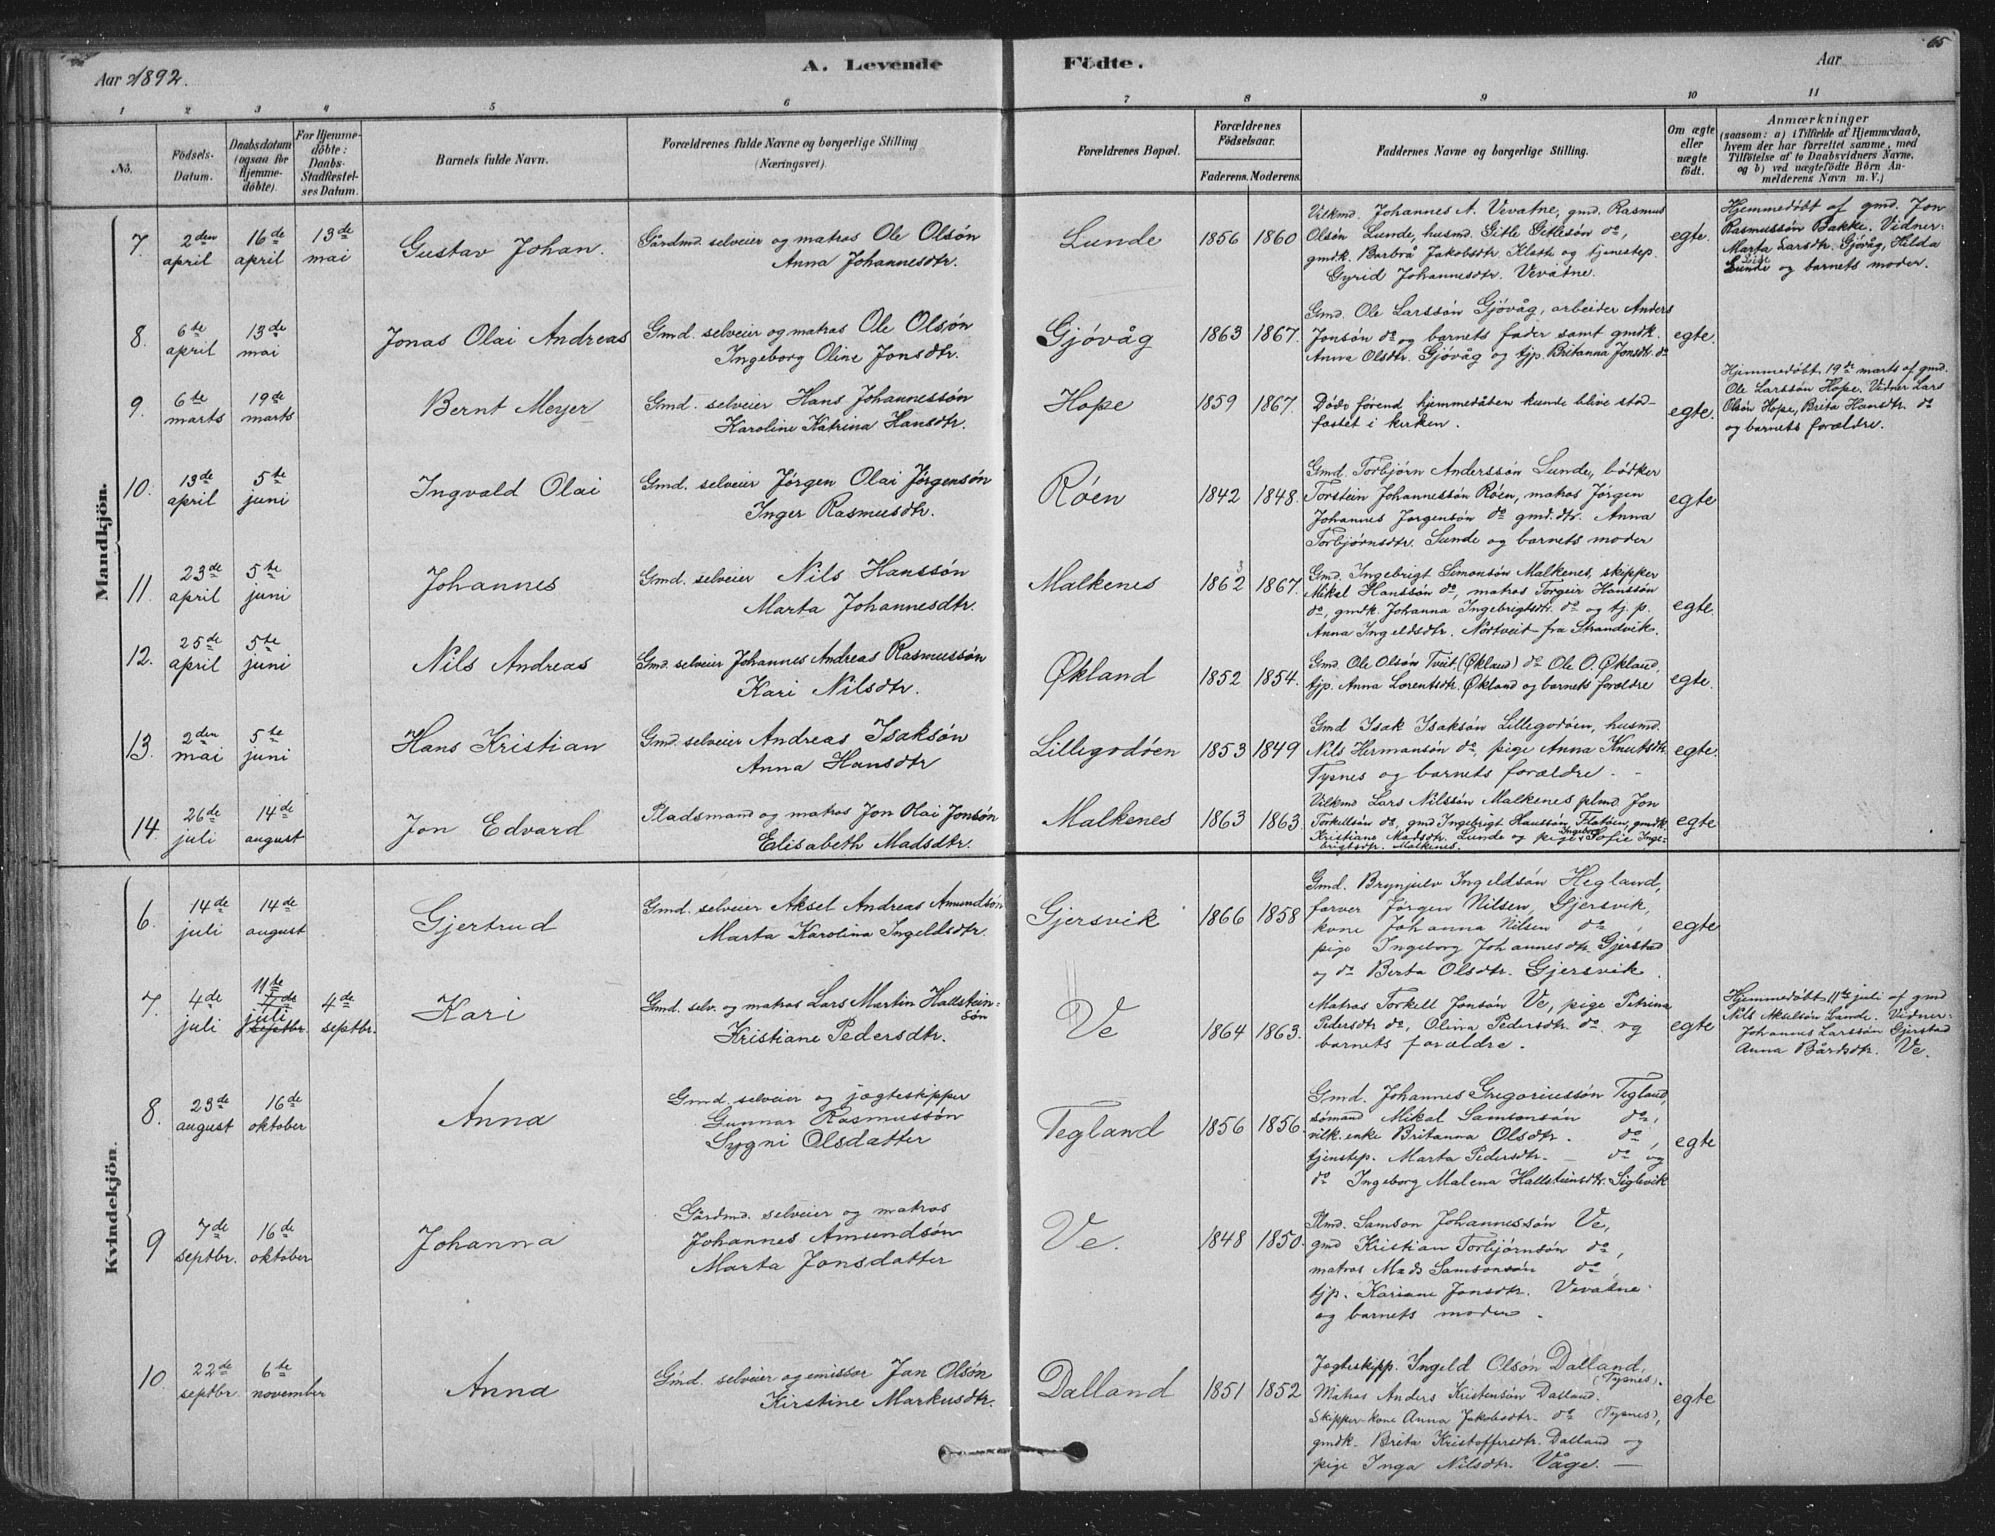 Aar 1892.
A. Levende Födte.
Aar
65
1 2 3 4 5 6 7 8 9 10 11
No.
Födsels-
Datum.
Daabsdatum
(ogsaa for
Hjemme-
döbte).
For Hjemme-
döbte:
Daabs-
Stadfæstel-
ses Datum.
Barnets fulde Navn.
Forældrenes fulde Navne og borgerlige Stilling
(Næringsvei).
Forældrenes Bopæl.
Forældrenes
Födselsaar.
Faderens. Moderens.
Faddernes Navne og borgerlige Stilling.
Om ægte
eller
uægte
födt.
Anmærkninger
(saasom: a) i Tilfælde af Hjemmedaab,
hvem der har forrettet samme, med
Tilföielse af to Daabsvidners Navne,
og b) ved uægtefödte Börn An-
melderens Navn m. V.)
Mandkjön.
7. 2den april 16de april 13de mai Gustav Johan.
Gårdmd. selveier og matros Ole Olsön
Anna Johannesdtr.
Lunde 1856 1860
Vilkmd. Johannes A. Vevatne, gmd. Rasmus
Olsön Lunde, husmd. Gitle Gitlesön do,
gmdk. Barbrå Jakobsdtr. Klath og tjenestep.
Gyrid Johannesdtr. Vevatne.
egte.
Hjemmedöbt af gmd. Jon
Rasmussön Bakke. Vidner-
Marta Larsdtr. Gjövåg, Hilda
Lunde og barnets moder.
8. 6te april 13de mai Jonas Olai Andreas
Gmd. selveier og matros Ole Olsön
Ingeborg Oline Jonsdtr.
Gjövåg 1863 1867.
Gmd. Ole Larssön Gjövåg, arbeider Anders
Jonsön do og barnets fader samt gmdk.
Anna Olsdtr. Gjövåg og tjp. Britanna Jonsdtr. do
egte.
9. 6te marts 19de marts Bernt Meyer
Gmd. selveier Hans Johannessön
Karoline Katrina Hansdtr.
Hope 1859 1867.
Döde förend hjemmedåben kunde blive stad-
fæstet i kirken.
egte.
Hjemmedöbt 19de marts af gmd.
Ole Larssön Hope. Vidner Lars
Olsön Hope, Brita Hansdtr. do
og barnets forældre.
10. 13de april 5te juni Ingvald Olai
Gmd. selveier Jörgen Olai Jörgensön
Inger Rasmusdtr.
Röen 1842 1848.
Gmd. Torbjörn Anderssön Lunde, bödker
Torstein Johannessön Röen, matros Jörgen
Johannes Jörgensön do gmd.dtr. Anna
Torbjörnsdtr. Lunde og barnets moder
egte
11. 23de april 5te juni Johannes
Gmd. selveier Nils Hanssön
Marta Johannesdtr.
Malkenes 1862 3 1867.
Gmd. Ingebrigt Simonsön Malkenes, skipper
Mikal Hanssön do, matros Torgeir Hanssön
do, gmdk. Johanna Ingebrigtsdtr. do og tj. p.
Anna Ingeldsdtr. Nortveit fra Strandvik.
egte.
12. 25de april 5te juni Nils Andreas
Gmd. selveier Johannes Andreas Rasmussön
Kari Nilsdtr.
Økland 1852 1854.
Gmd. Ole Olsön Tveit (Økland) do Ole O. Økland,
tjp. Anna Lorentsdtr. Økland og barnets forældre
egte.
13. 2den mai 5te juni Hans Kristian
Gmd. selveier Andreas Isaksön
Anna Hansdtr
Lillegodöen 1853 1849
Gmd Isak Isaksön Lillegodöen, husmd.
Nils Hermansön do, pige Anna Knutsdtr.
Tysnes og barnets forældre.
egte.
14. 26de juli 14de august Jon Edvard
Pladsmand og matros Jon Olai Jonsön
Elisabeth Madsdtr.
Malkenes 1863 1863
Vilkmd Lars Nilssön Malkenes plmd. Jon
Torkelsön do, gmd Ingebrigt Haussön Flateen, gmdk.
Kristiane Madsdtr. Lunde og pige Ingeborg Sofie Inge-
brigtsdtr. Malkenes.
egte
Kvindekjön.
6. 14de juli 14de august Gjertrud
Gmd. selveier Aksel Andreas Amundsön
Marta Karolina Ingeldsdtr.
Gjersvik 1866 1858
Gmd. Brynjulv Ingeldsön Hegland,
farver Jörgen Nilsen, Gjersvik,
kone Johanna Nilsen do,
pige Ingeborg Johannesdtr. Gjerstad
og do Berta Olsdtr. Gjersvik.
egte
7. 4de juli 11te juli 4de septbr. 4de septbr. Kari
Gmd. selv. og matros Lars Martin Hallstein-
sön
Kristiane Pedersdtr.
Ve 1864 1863.
Matros Torkell Jonsön Ve, pige Petrina
Pedersdtr do, Olina Pedersdtr. do og
barnets forældre.
egte
Hjemmedöbt 11te juli af gmd
Nils Akselsön Lande. Vidner-
Johannes Larssön Gjerstad
Anna Bårdsdtr. Ve.
8. 23de august 16de oktober Anna
Gmd. selveier og jægteskipper
Gunnar Rasmussön
Sygni Olsdatter
Tegland 1856 1856.
Gmd. Johannes Gregoriussön Tegland
sömand Mikal Samsonsön do,
vilk. enke Britanna Olsdtr. do,
tjenstep. Marta Pedersdtr. - do og
do Ingeborg Malena Hallsteinsdtr. Siglevik
egte
9 7de septbr. 16de oktober Johanna
Gårdmd. selveier og matros
Johannes Amundsön
Marta Jonsdatter
Ve. 1848 1850.
Plmd. Samson Johannessön Ve,
gmd Kristian Torbjörnsön do,
matros Mads Samsonsön do,
tjp. Kariane Jonsdtr. Vevatne
og barnets moder.
10 22de septbr. 6te november Anna
Gmd. selveier og emissær Jan Olsön
Kirstine Markusdtr.
Dalland 1851 1852
Jægteskipp. Ingeld Olsön Dalland,
(Tysnes).
Matros Anders Kristensön Dalland.
Skipper-kone Anna Jakobsdtr. do (Tysnes),
gmdk. Brita Kristoffersdtr. Dalland og
pige Inga Nilsdtr. Våge.
egte